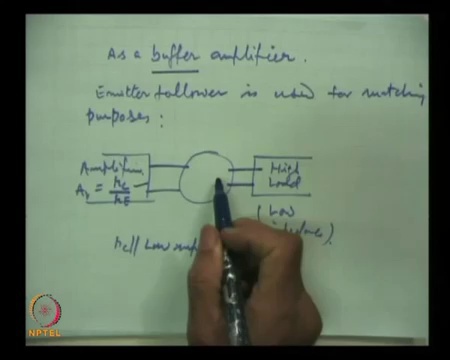 As a buffer amplifier.
Emitter follower is used for matching
purposes :
Amplifier
Av = RC
RE
High
Load
(Low
RC // Low
NPTEL